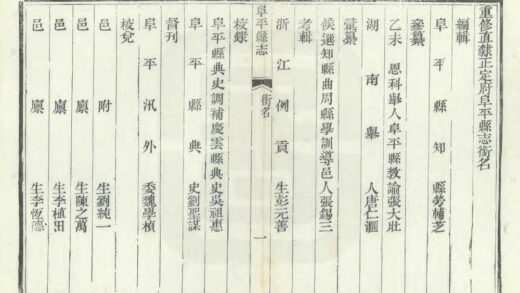 重修直隸正定府阜平縣志銜名
編輯
阜平縣知縣勞輔芝
參纂
乙未恩科舉人阜平縣教諭張大壯
湖南舉人唐仁滙
彙纂
候選知縣曲周縣學訓導邑人張錫三
考輯
浙江例貢生彭元善
阜平縣志
銜名
一
校錄
阜平縣典史調補慶雲縣典史吳祖惠
阜平縣典史劉聖謀
督刊
阜平汛外委魏學楨
校兌
邑附生劉純一
邑廪生陳之萬
邑廪生李植田
邑廪生李恆德